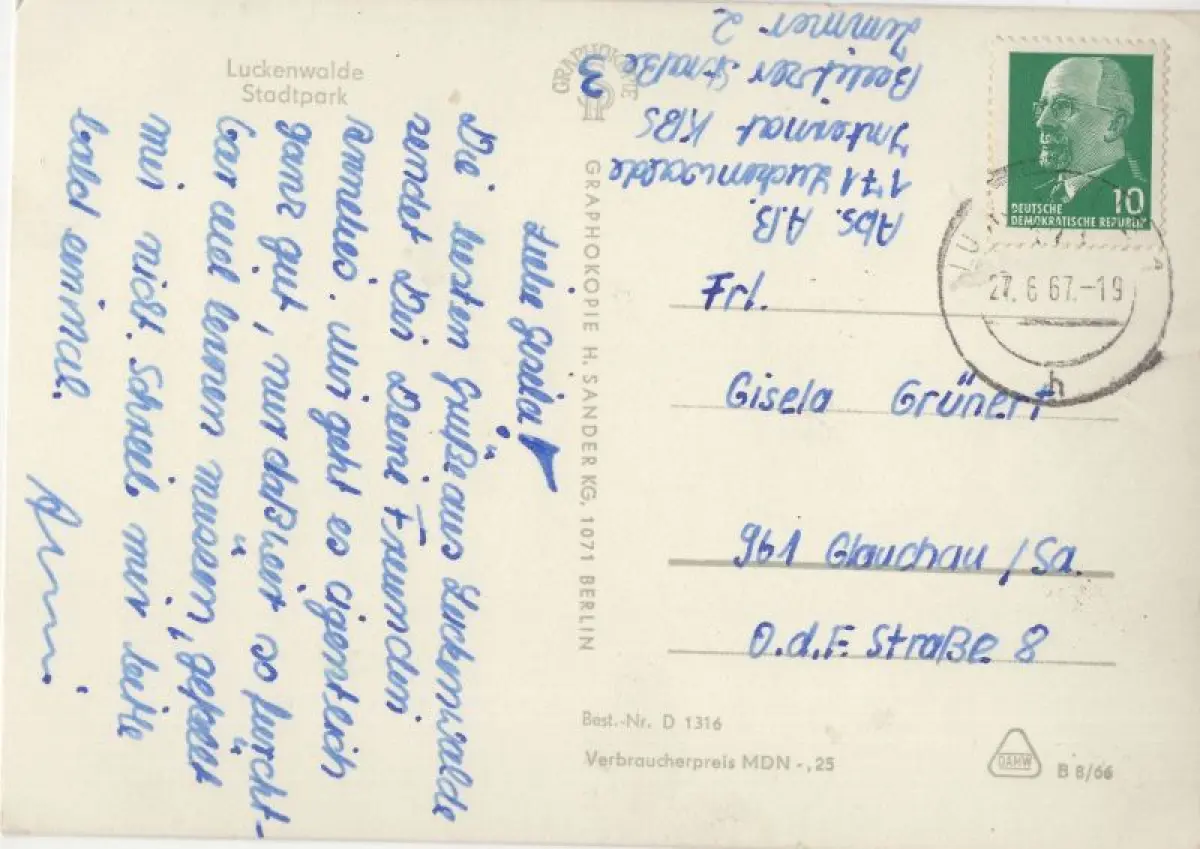 Luckenwalde
Stadtpark
Liebe Gisela!
Die besten Grüße aus Luckenwalde
sendet Dir Deine Freundin
Annelies. Mir geht es eigentlich
ganz gut, nur daß wir so furcht-
bar viel lernen müssen, gefällt
mir nicht. Schreib mir bitte
bald einmal.
GRAPHOKOPIE
GRAPHOKOPIE H. SANDER KG, 1071 BERLIN
Abs. A.B.
171 Luckenwalde
Internat KBS
Beelitzer Straße 3
Zimmer 2
10
DEUTSCHE
DEMOKRATISCHE REPUBLIK
27.6.67.-19
h
Frl.
Gisela Grünert
961 Glauchau / Sa.
O.d.F. Straße 8
Best.-Nr. D 1316
Verbraucherpreis MDN -,25
DAMW
B 8/66